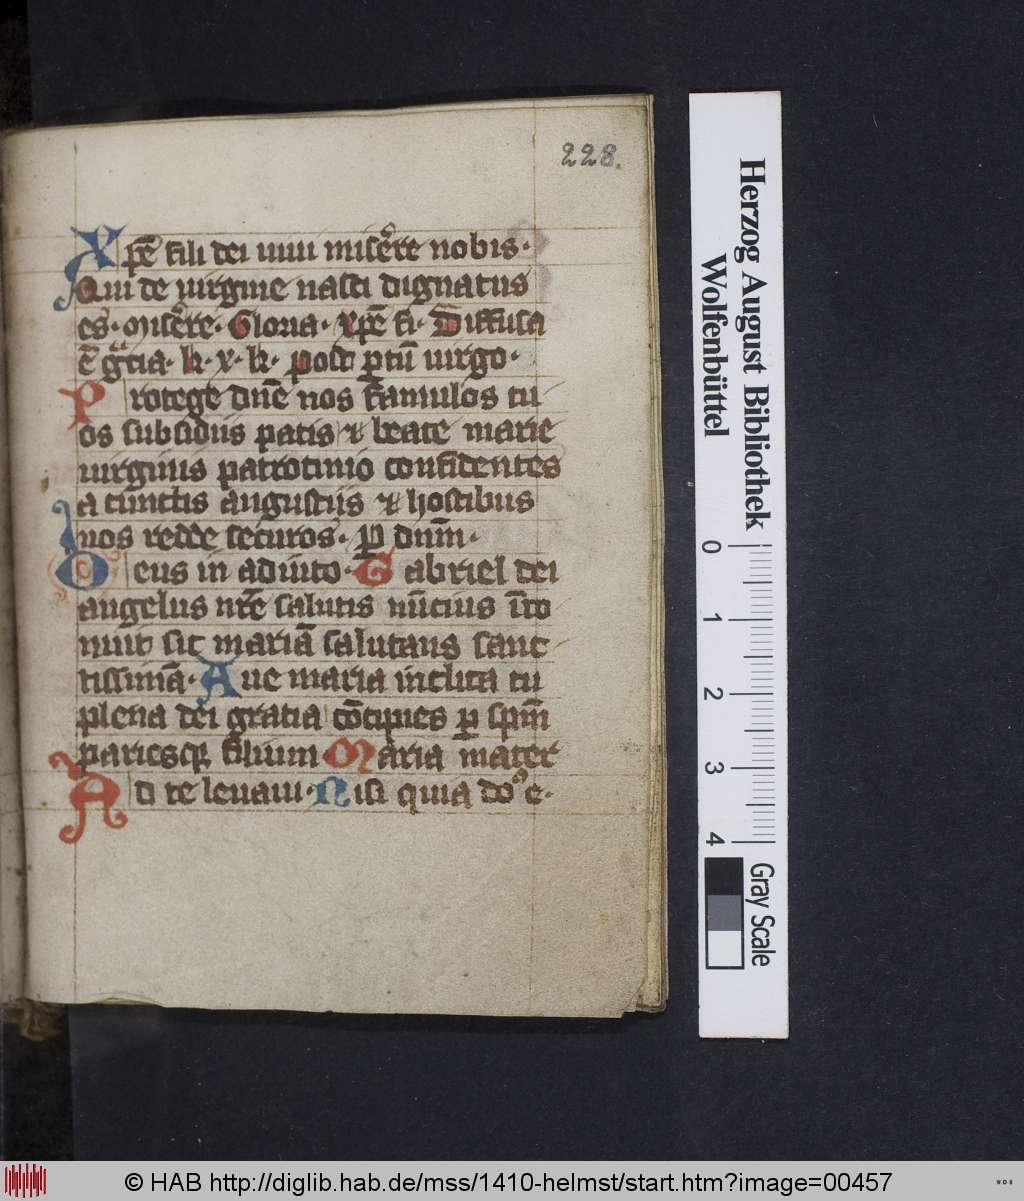 228.
Xpē fili dei uiui mis̄ere nobis·
Qui de uirgine nasci dignatus
es· mis̄ere· Gloria· xpē fi· Diffusa
ē gr̄cia· k· x· k· post ptū uirgo·
Protege dn̄e nos famulos tu
os subsidiis pacis & beate marie
uirginis patrocinio confidentes
a cunctis angustiis & hostibus
nos redde securos· p dn̄m·
Deus in adiuto· Gabriel dei
angelus nr̄e salutis nūcius īto
nuit sic mariā salutans sanc
tissimā· Aue maria inclita tu
plena dei gratia cōcipies p spm̄
pariesq; filium Maria mater
Ad te leuaui· Nisi quia do⁹ e·
Herzog August Bibliothek
Wolfenbüttel
0 1 2 3 4
Gray Scale
© HAB http://diglib.hab.de/mss/1410-helmst/start.htm?image=00457